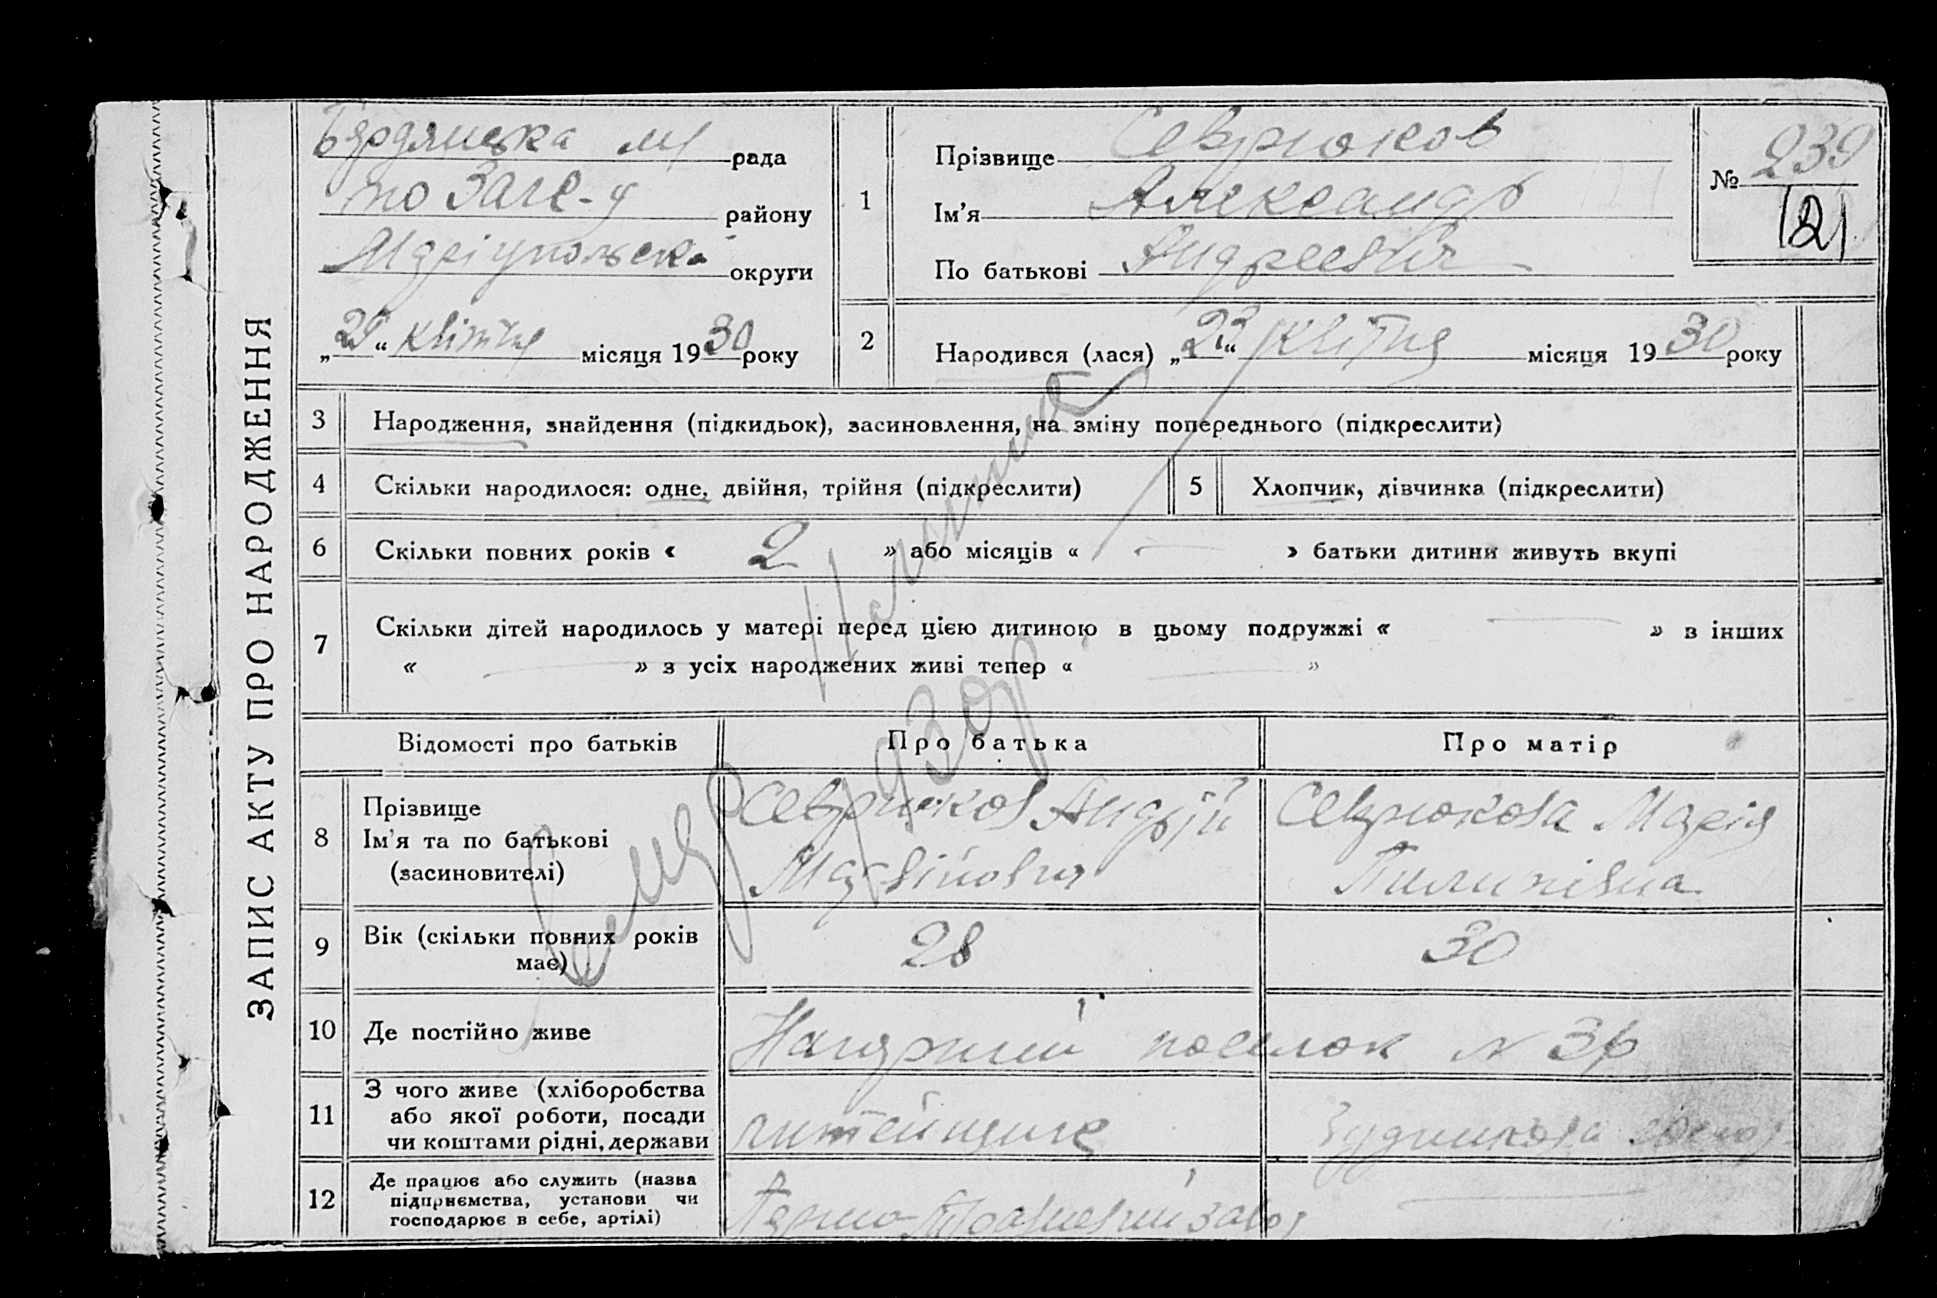 ЗАПИС АКТУ ПРО НАРОДЖЕННЯ
Бердянська рада
по Загс-у району
Маріупольська округи
„29“ квітня місяця 1930 року
1
Прізвище Севрюков
Ім’я Александр
По батькові Андреевич
№ 239
(2)
2
Народився (лася) „23“ Квітня місяця 1930 року
3 Народження, знайдення (підкидьок), засиновлення, на зміну попереднього (підкреслити)
4 Скільки народилося: одне, двійня, трійня (підкреслити)
5 Хлопчик, дівчинка (підкреслити)
6 Скільки повних років « 2 » або місяців « — » батьки дитини живуть вкупі
7 Скільки дітей народилось у матері перед цією дитиною в цьому подружжі « — » в інших
« — » з усіх народжених живі тепер « — »
Відомості про батьків Про батька Про матір
8 Прізвище
Ім’я та по батькові
(засиновителі)
Севрюков Андрій
Матвійович
Севрюкова Марія
Пилипівна
9 Вік (скільки повних років
має)
28
30
10 Де постійно живе
Нагорний поселок № 36
11 З чого живе (хліборобства
або якої роботи, посади
чи коштами рідні, держави
литейщик
12 Де працює або служить (назва
підприємства, установи чи
господарює в себе, артілі)
завод
помер 1930 р.